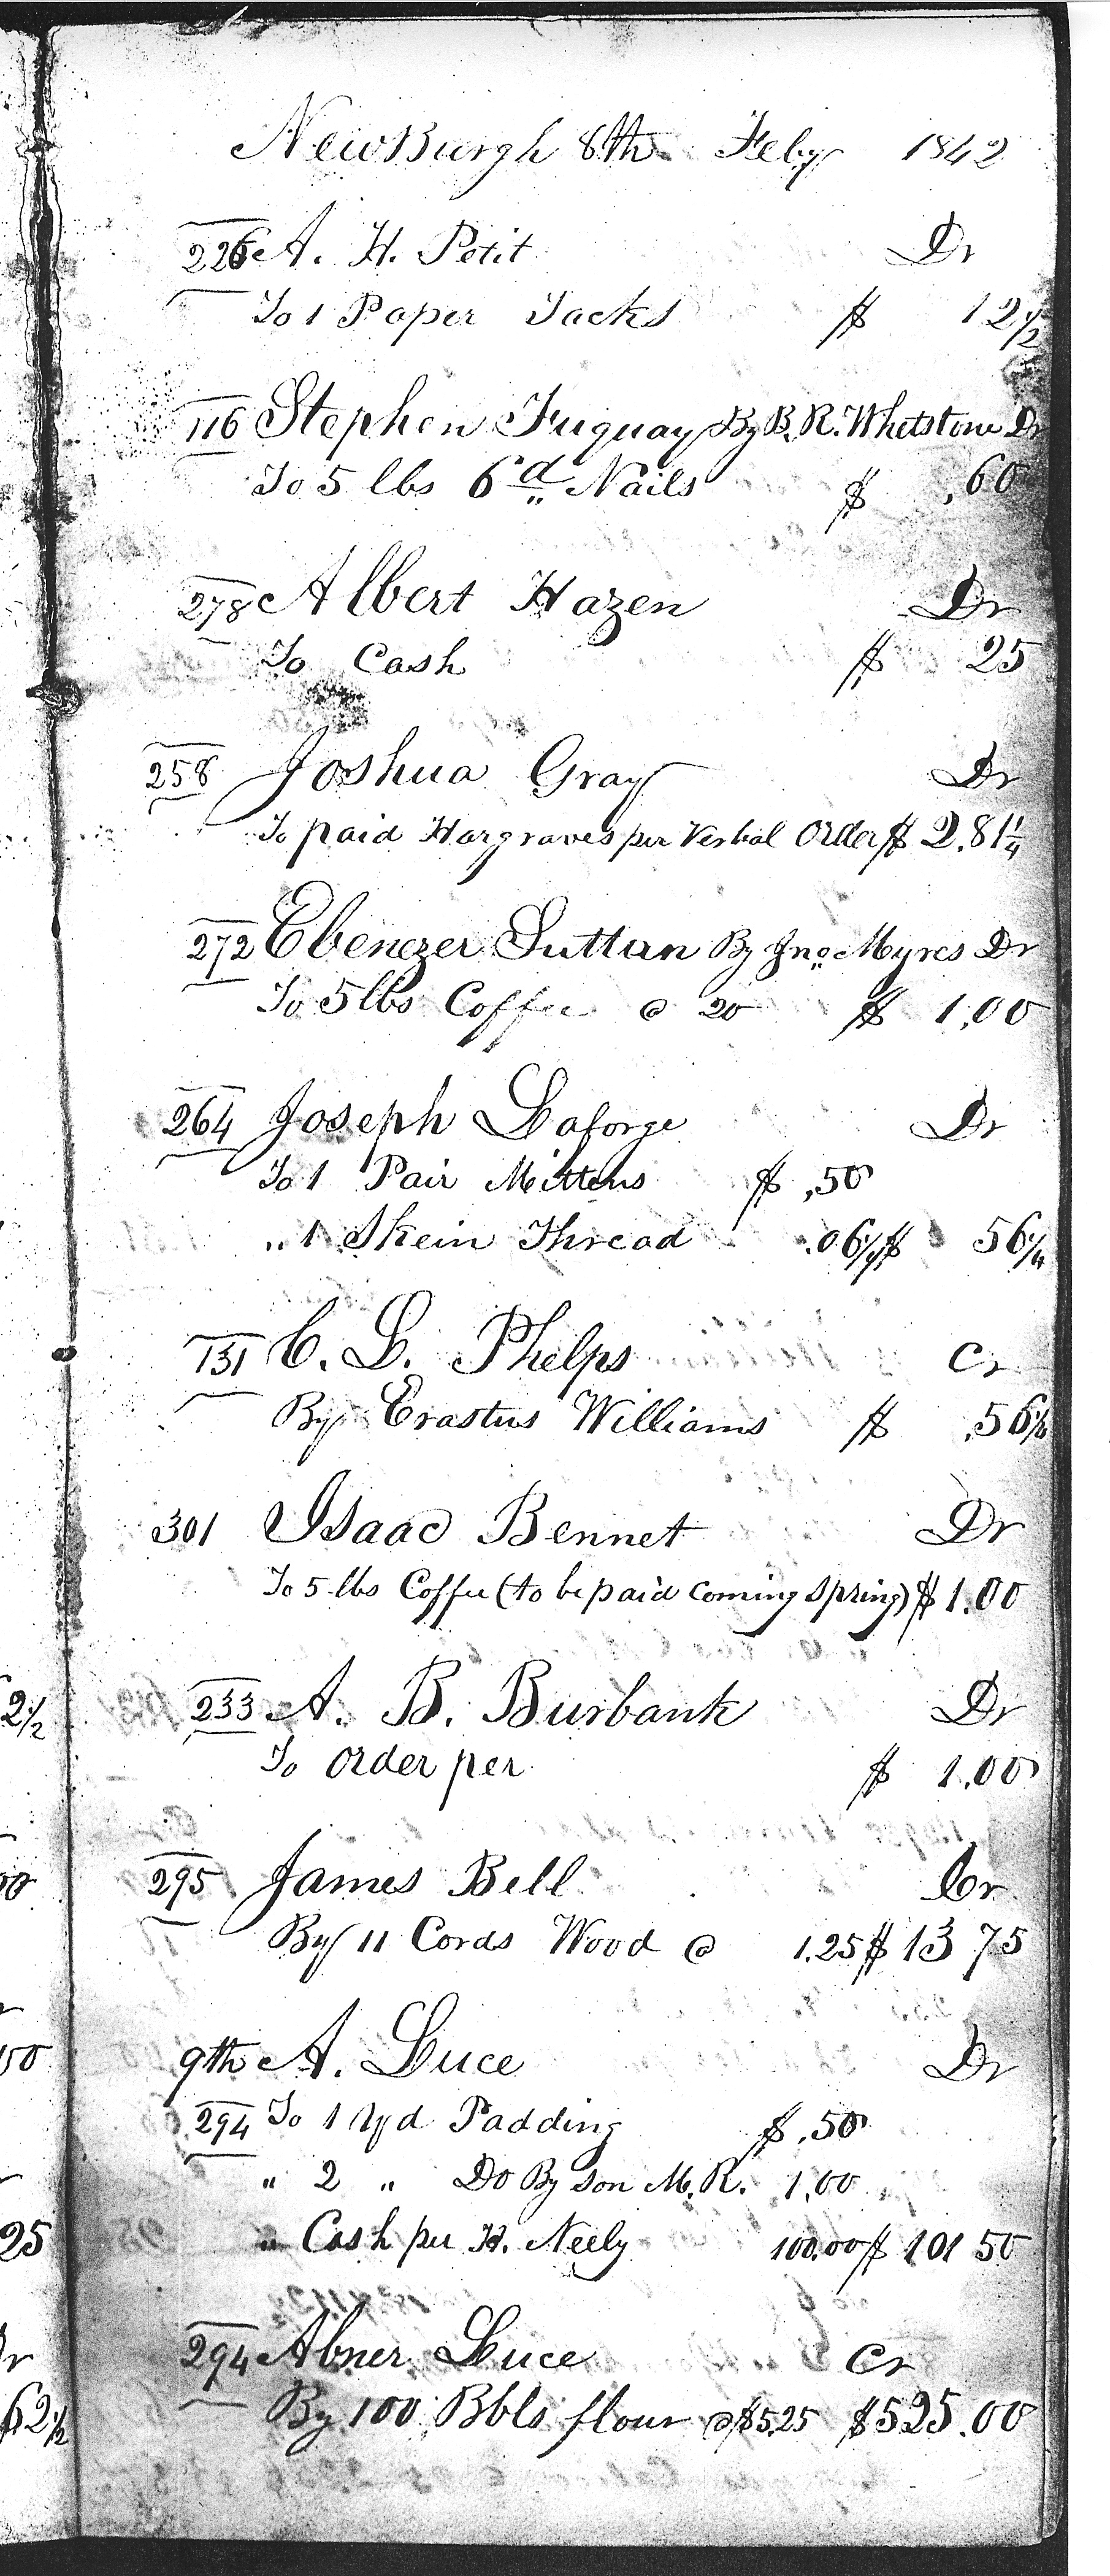 NewBurgh 8th Feby 1842
226 A. H. Petit Dr
To 1 Paper Tacks $ 12 1/2
116 Stephen Fuquay By B. R. Whetstone Dr
To 5 lbs 6d Nails $ .60
278 Albert Hazen Dr
To Cash $ 25
258 Joshua Gray Dr
To paid Hargraves per Verbal Order $ 2.81 1/4
272 Ebenezer Suttan By Jno Myres Dr
To 5 lbs Coffee @ 20 $ 1.00
264 Joseph Laforge Dr
To 1 Pair Mittens $ .50
" 1 Skein Thread .06 1/4 $ 56 1/4
131 C. L. Phelps Cr
By Erastus Williams $ .56 1/4
301 Isaac Bennet Dr
To 5 lbs Coffee (to be paid coming spring) $ 1.00
233 A. B. Burbank Dr
To order per $ 1.00
295 James Bell Cr
By 11 Cords Wood @ 1.25 $ 13 75
9th A. Luce Dr
294 To 1 Yd Padding $ .50
" 2 " Do By son M. R. 1.00
" Cash per H. Neely 100.00 $ 101 50
294 Abner Luce Cr
By 100 Bbls flour @ $5.25 $525.00
2 1/2
00
50
25
r
62 1/2